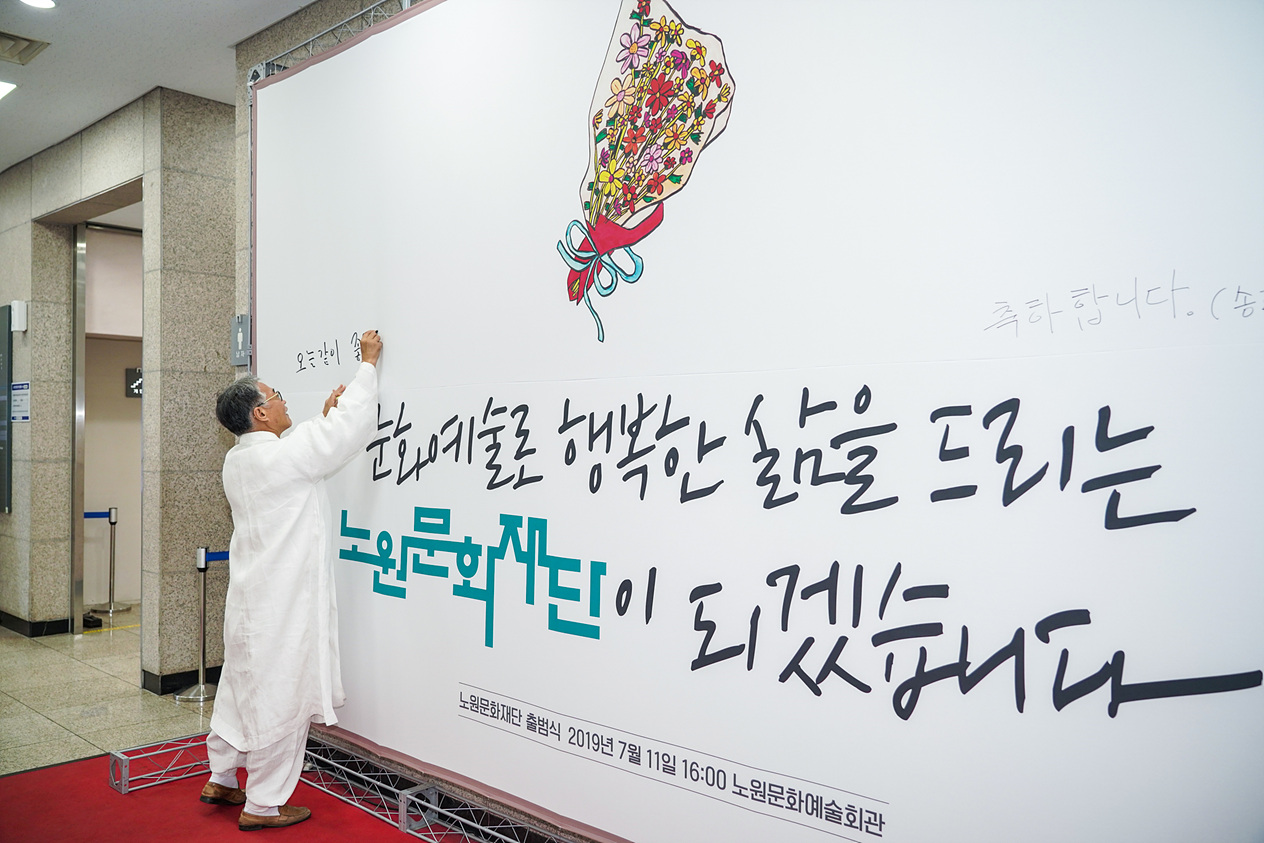 축하합니다. (송
오늘같이 좋
문화예술로 행복한 삶을 드리는
노원문화재단이 되겠습니다
노원문화재단 출범식 2019년 7월 11일 16:00 노원문화예술회관